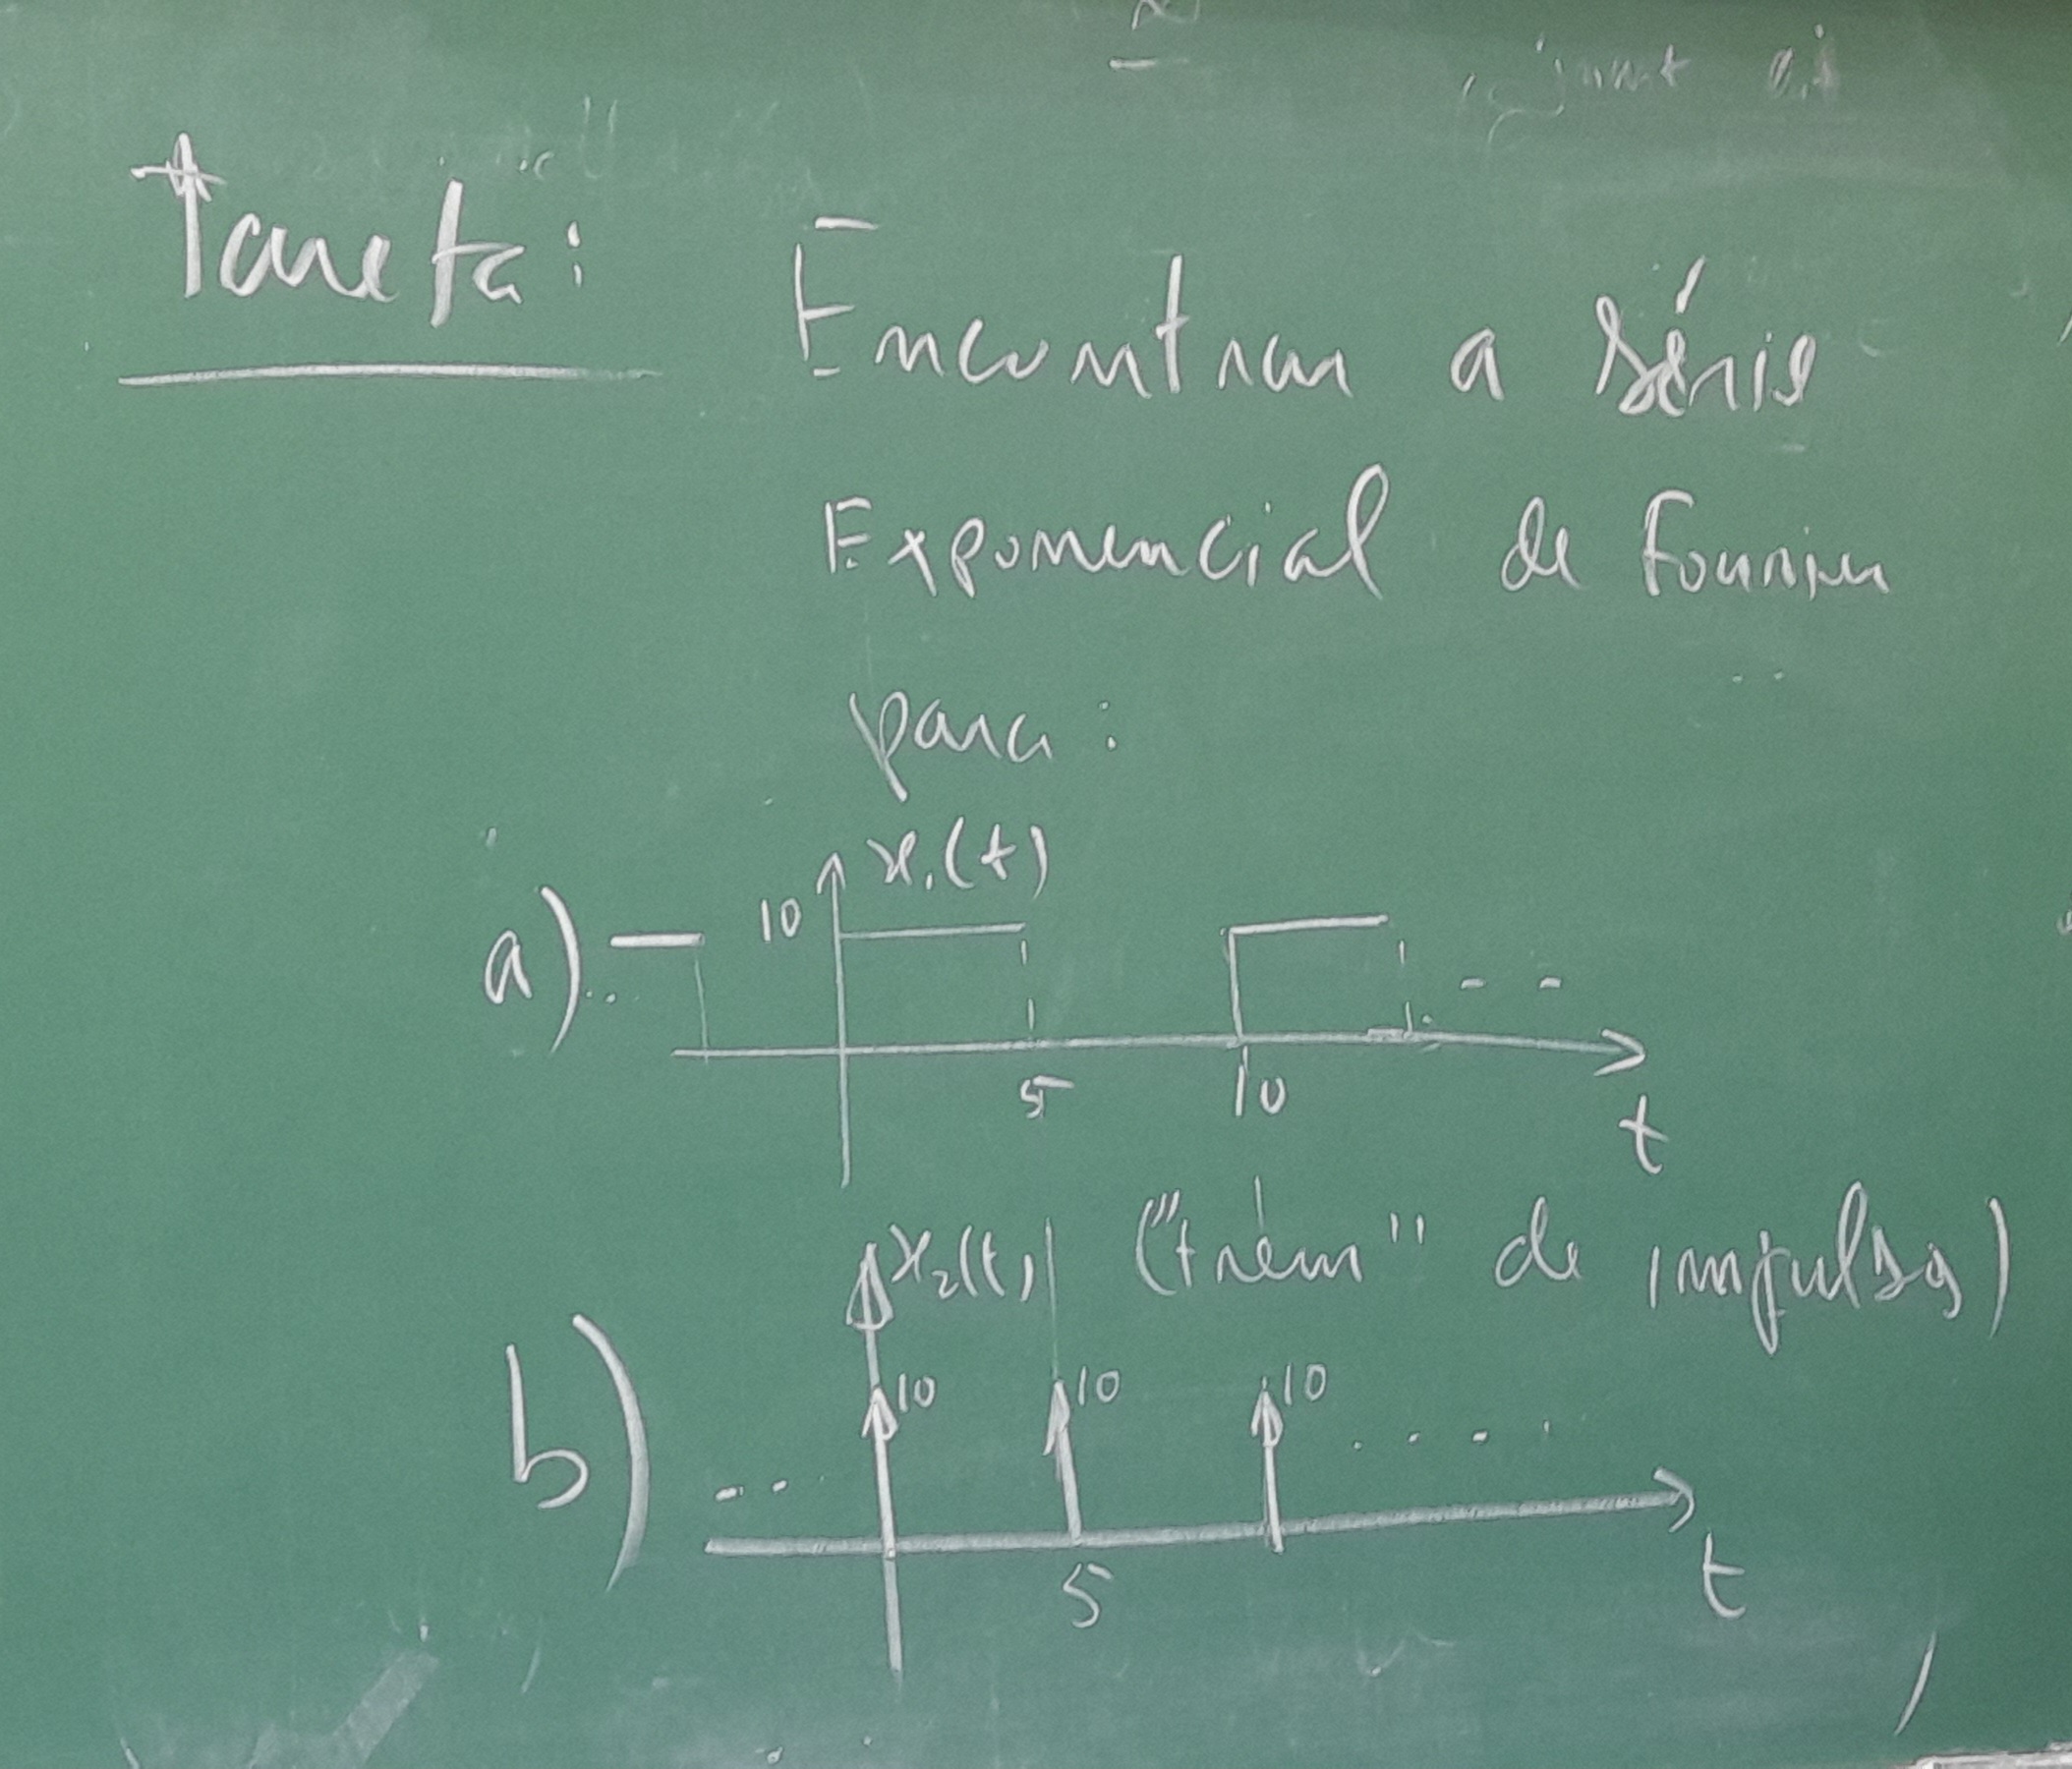 Tarefa: Encontrar a série
Exponencial de Fourier
para:
x₁(t)
a) 10
5 10
t
x₂(t) ("trem" de impulsos)
b) 10 10 10
5
t